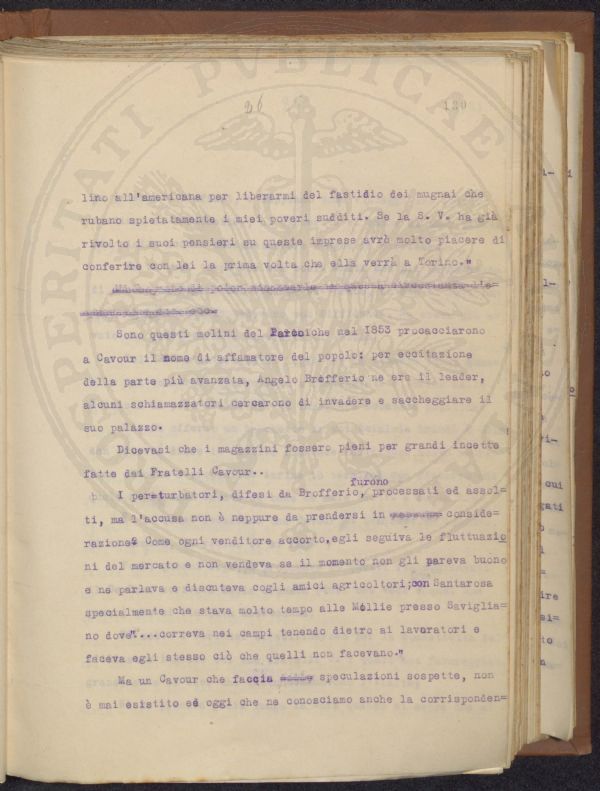 26
120
lino all'americana per liberarmi del fastidio dei mugnai che
rubano spietatamente i miei poveri sudditi. Se la S. V. ha già
rivolto i suoi pensieri su queste imprese avrò molto piacere di
conferire con lei la prima volta che ella verrà a Torino."
Sono questi molini del Parco che nel 1853 procacciarono
a Cavour il nome di affamatore del popolo: per eccitazione
della parte più avanzata, Angelo Brofferio ne era il leader,
alcuni schiamazzatori cercarono di invadere e saccheggiare il
suo palazzo.
Dicevasi che i magazzini fossero pieni per grandi incette
fatte dai Fratelli Cavour..
furono
I perturbatori, difesi da Brofferio, processati ed assol=
ti, ma l'accusa non è neppure da prendersi in conside=
razione. Come ogni venditore accorto, egli seguiva le fluttuazio
ni del mercato e non vendeva se il momento non gli pareva buono
e ne parlava e discuteva cogli amici agricoltori; con Santarosa
specialmente che stava molto tempo alle Mollie presso Saviglia=
no dove "...correva nei campi tenendo dietro ai lavoratori e
faceva egli stesso ciò che quelli non facevano."
Ma un Cavour che faccia speculazioni sospette, non
è mai esistito ed oggi che ne conosciamo anche la corrisponden=
VERITATI PUBLICAE